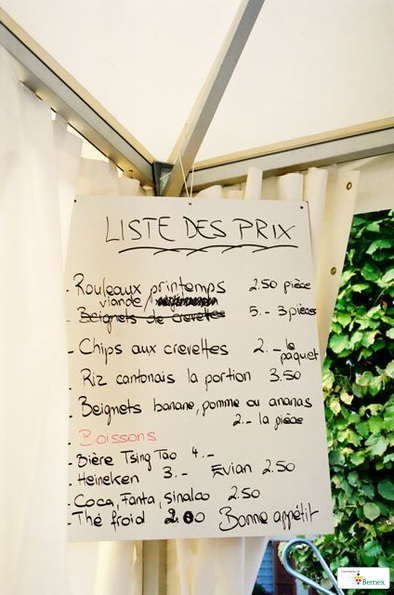 LISTE DES PRIX
- Rouleaux printemps 2.50 pièce
viande/
- Beignets de crevettes 5.- 3 pièces
- Chips aux crevettes 2.- le
paquet
- Riz cantonais la portion 3.50
- Beignets banane, pomme ou ananas
2.- la pièce
- Boissons
- Bière Tsing Tao 4.-
- Heineken 3.- Evian 2.50
- Coca, Fanta, sinalco 2.50
- Thé froid 2.00 Bonne appétit
Bernex